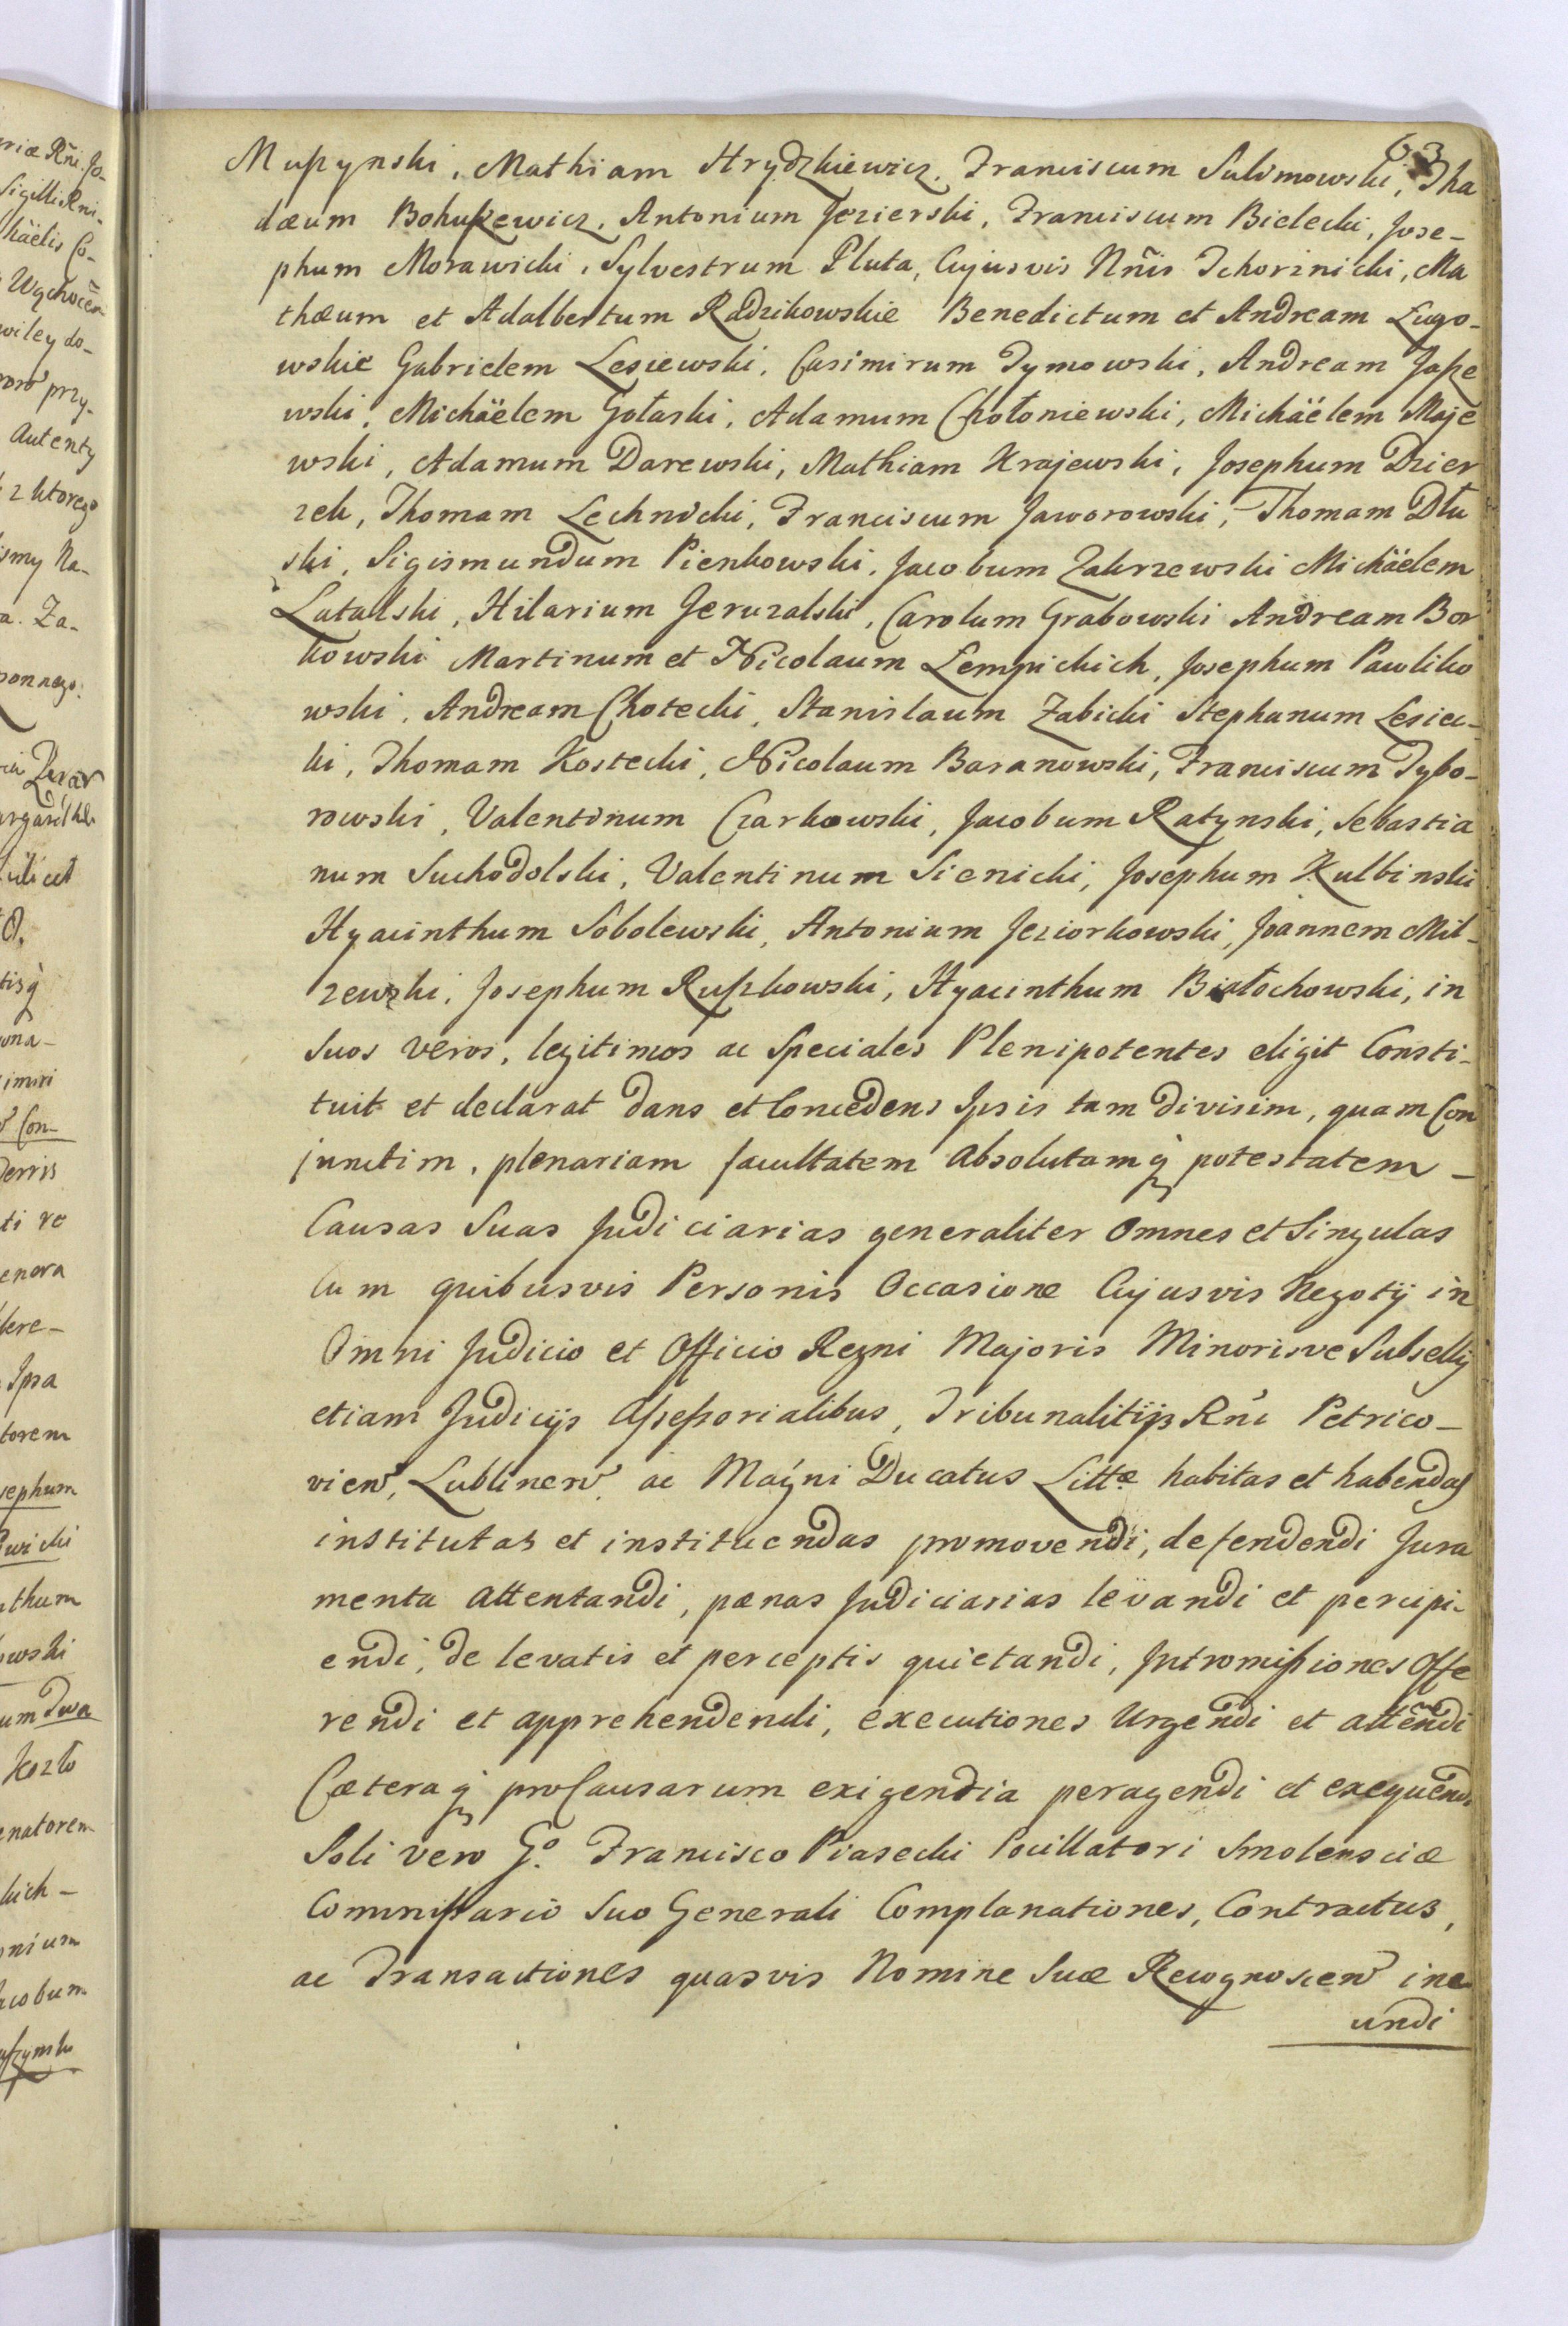 63
Muszynski, Mathiam Hrydzkiewicz, Franciscum Sulimowski, Tha
dæum Bohuszewicz, Antonium Jezierski, Franciscum Bielecki, Jose-
phum Morawicki, Sylvestrum Pluta, Cujusvis Nñis Tchorznicki, Ma
thæum et Adalbertum Radzikowskie Benedictum et Andream Ługo-
wskie Gabrielem Lesiewski, Casimirum Tymowski, Andream Jasze
wski, Michäelem Gołaski, Adamum Chołoniewski, Michäelem Maje
wski, Adamum Darewski, Mathiam Krajewski, Josephum Dzier
zek, Thomam Lechnicki, Franciscum Jaworowski, Thomam Dłu
ski, Sigismundum Pienkowski, Jacobum Zakrzewski Michäelem
Latalski, Hilarium Jeruzalski, Carolum Grabowski Andream Bor
kowski Martinum et Nicolaum Łempickich, Josephum Pawliko
wski, Andream Chotecki, Stanislaum Zabicki Stephanum Lesiec-
ki, Thomam Kostecki, Nicolaum Baranowski, Franciscum Dybo-
rowski, Valentinum Czarkowski, Jacobum Ratynski, Sebastia
num Suchodolski, Valentinum Sienicki, Josephum Kulbinski
Hyacinthum Sobolewski, Antonium Jeziorkowski, Joannem Mil-
zewski, Josephum Ruszkowski, Hyacinthum Białochowski, in
Suos veros, legitimos ac Speciales Plenipotentes eligit Consti-
tuit et declarat dans et Concedens Ipsis tam divisim, quam Con
junctim, plenariam facultatem absolutamq̃ potestatem -
Causas Suas Judiciarias generaliter Omnes et Singulas
Cum quibusvis Personis Occasione Cujusvis Negotÿ in
Omni Judicio et Officio Regni Majoris Minorisve Subsellÿ
etiam Judicÿs Assessorialibus, Tribunalitÿs Rñi Petrico-
vien, Lublinen, ac Magni Ducatus Littæ habitas et habendas
institutas et instituendas promovendi, defendendi Jura
menta attentandi, pænas Judiciarias levandi et percipi-
endi, de levatis et perceptis quietandi, Intromissiones Offe
rendi et apprehendendi, executiones Urgendi et attẽndi
Cæteraq̃ pro Causarum exigentia peragendi et exequendi
Soli vero Gº. Francisco Piasecki Pocillatori Smolensciæ
Commissario Suo Generali Complanationes, Contractus,
ac Transactiones quasvis Nomine Suæ Recognoscen ine
undi